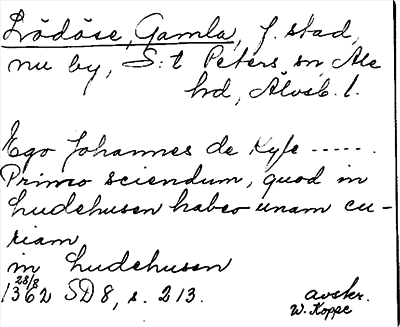 Lödöse, Gamla, f. stad,
nu by, S:t Peters sn, Ale
hd, Älvsb. l.
Ego Johannes de Kyle ------.
Primo sciendum, quod in
Ludehusen habeo unam cu-
riam
in Ludehusen
28/8
1362 SD 8, s. 213.
avskr.
W. Koppe